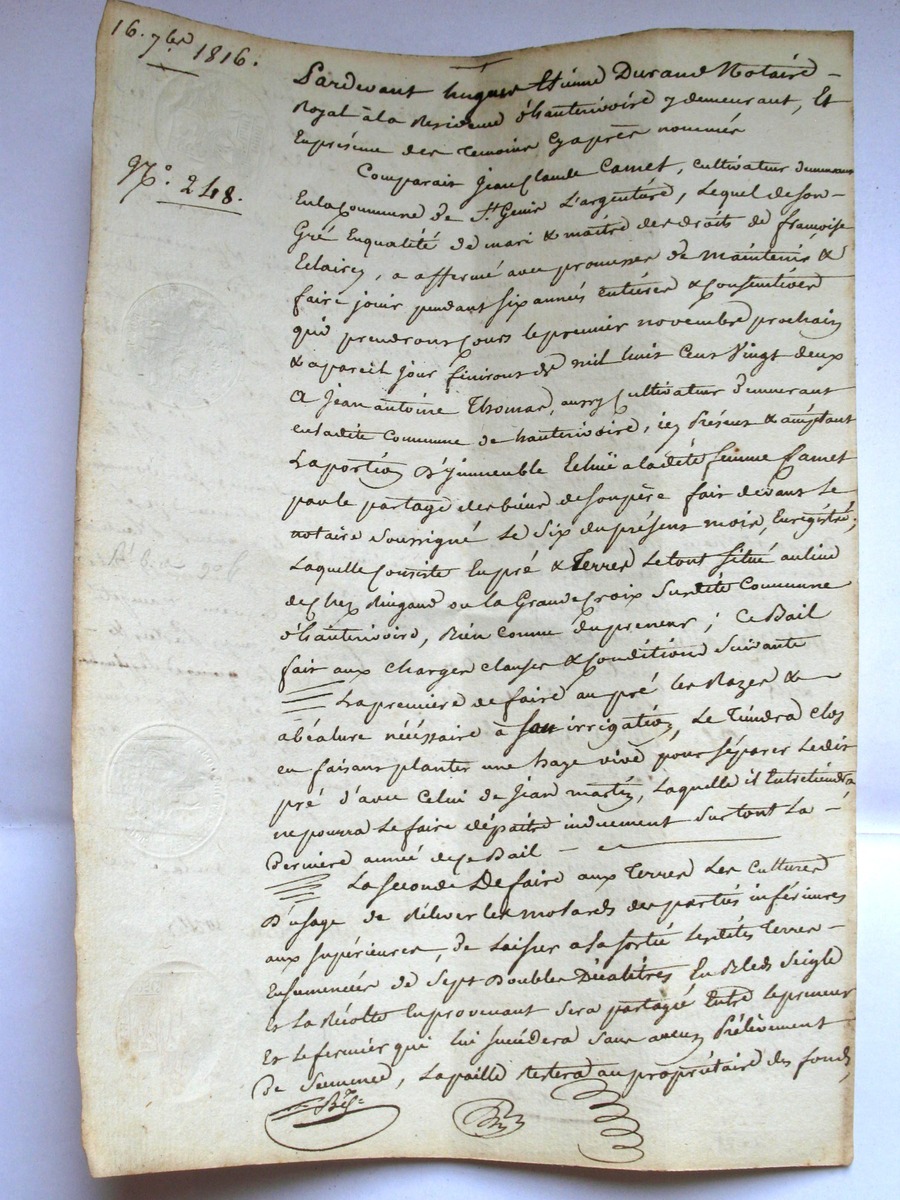 16. 7bre 1816.
N°. 248.
Pardevant hugues Etienne Durand Notaire -
Royal à la Residence d'hauterivoire y demeurant, Et
En présence des Temoins Cyaprès nommés
Comparait Jean Claude Camet, cultivateur demeurant
En la Commune de St. Genis L'argentiere, Lequel de son -
Gré En qualité de mari & maitre des droits de françoise
Eclairey, a affermé avec promesse de maintenir &
faire jouir pendant six années entieres & Consécutives
qui prendront cours le premier novembre prochain
& a pareil jour finiront de mil huit Cent Vingt deux
A Jean antoine Thomas, aussy Cultivateur demeurant
en ladite Commune de hauterivoire, icy Présent & acceptant
La portion D'immeuble Echue a la dite femme Camet
par le partage des biens de son père fait devant le
notaire soussigné Le Six du présent mois, Enregistré;
Laquelle Consiste En pré & Terres Le tout situé au lieu
de chez Ringaud ou la Grande Croix Surdite Commune
d'hauterivoire, Bien Connue du preneur; Ce Bail
fait aux charges clauses & Conditions Suivante
La premiere de faire au pré les Razes &
abéalure nécéssaire à son irrigation, Le Tiendra clos
en faisant planter une haye vive pour séparer Ledit
pré d'avec Celui de Jean martin, Laquelle il Entretiendra
ne pourra Le faire dépaitre induement Surtout La -
Derniere année de ce Bail -
La seconde De faire aux Terres Les Cultures
D'usage de Rélever les motards des parties inférieures
aux supérieures, de Laisser a la sortie Lesdites Terres -
Ensemencées de Sept Doubles Décalitres En Bled Seigle
Et La Récolte En provenant sera partagée Entre le preneur
Et Le fermier qui lui succédera Sans aucun Prélèvement
De Semence, La paille Restera au propriétaire des fonds,